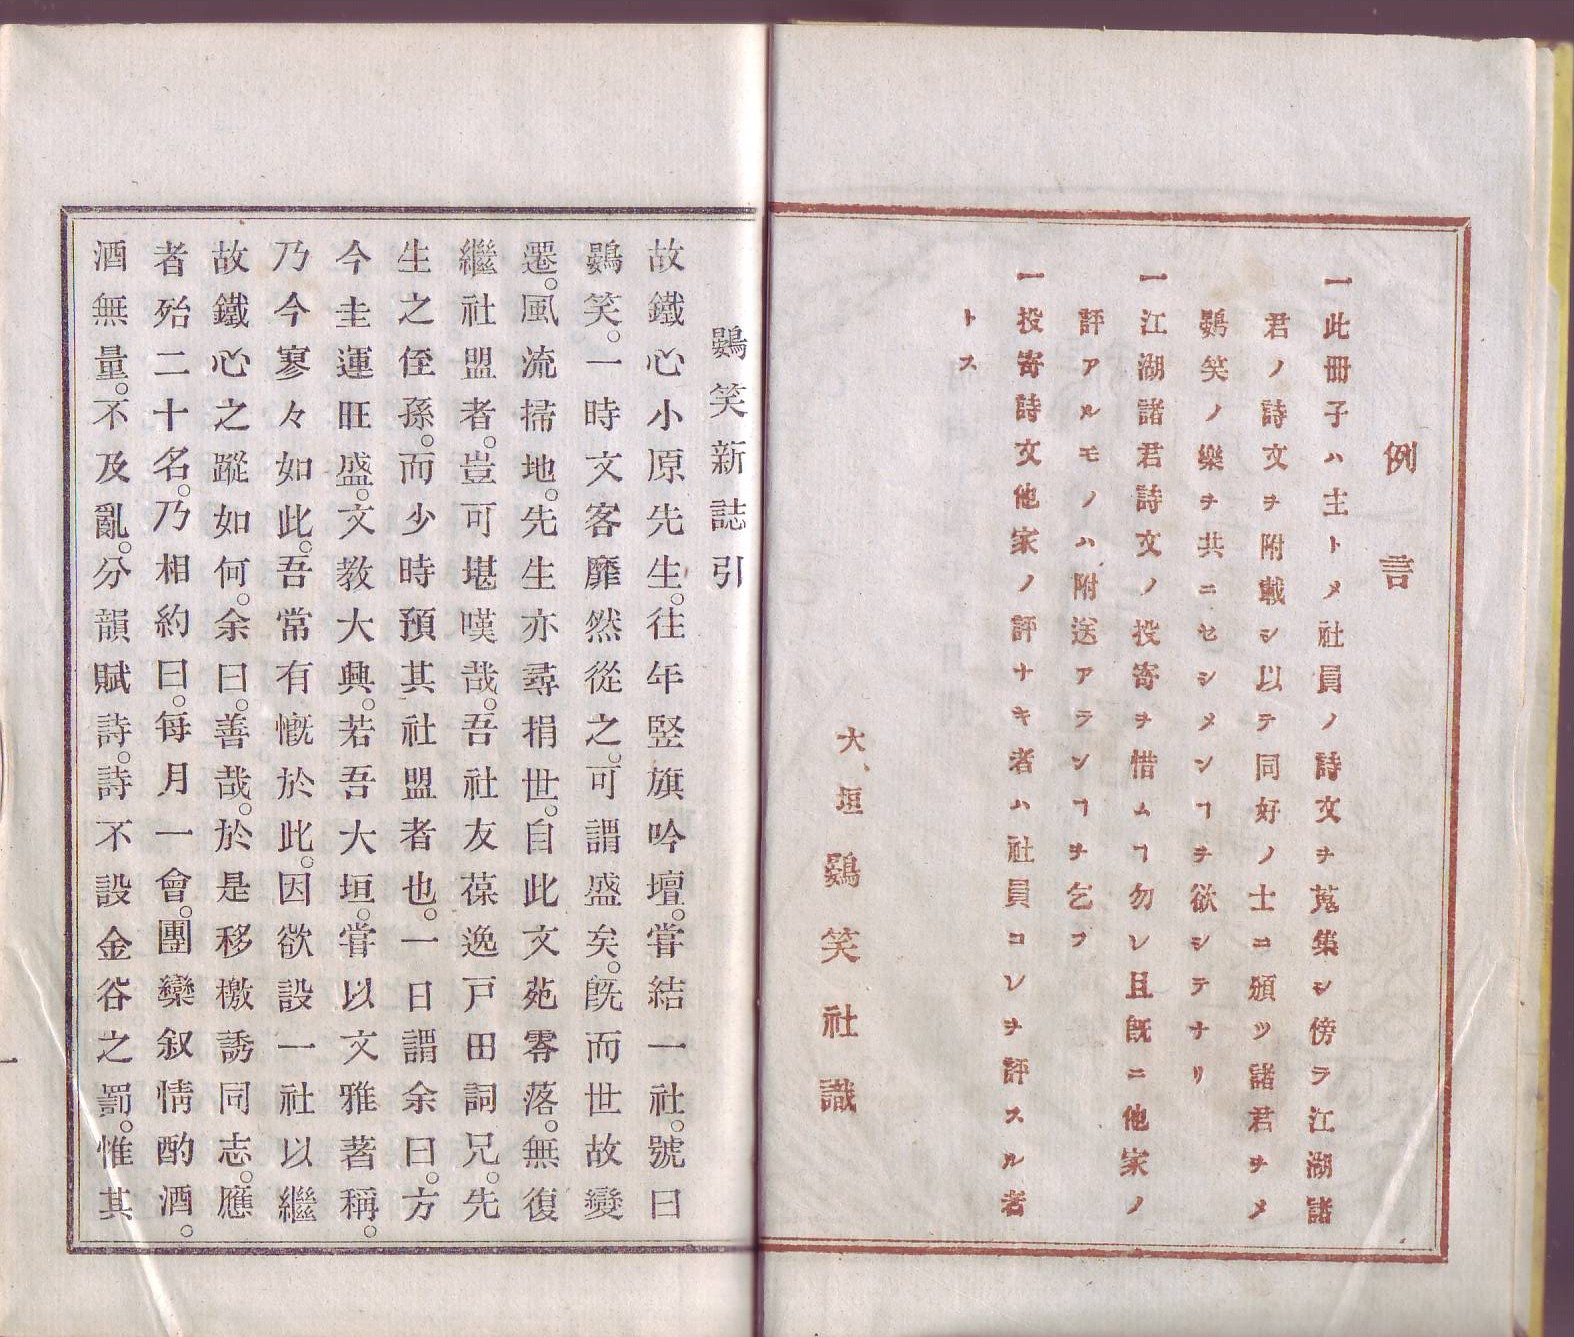 例言
一此冊子ハ主トメ社員ノ詩文ヲ蒐集シ傍ラ江湖諸
君ノ詩文ヲ附載シ以テ同好ノ士ニ頒ツ諸君ヲメ
鷃笑ノ樂ヲ共ニセシメンヿヲ欲シテナリ
一江湖諸君詩文ノ投寄ヲ惜ムヿ勿レ且既ニ他家ノ
評アルモノハ附送アランヿヲ乞フ
一投寄詩文他家ノ評ナキ者ハ社員コレヲ評スル者
トス
大垣鷃笑社識
鷃笑新誌引
故鐵心小原先生。往年竪旗吟壇。嘗結一社。號曰
鷃笑。一時文客靡然從之。可謂盛矣。既而世故變
遷。風流掃地。先生亦尋捐世。自此文苑零落。無復
繼社盟者。豈可堪嘆哉。吾社友葆逸戸田詞兄。先
生之侄孫。而少時預其社盟者也。一日謂余曰。方
今圭運旺盛。文敎大興。若吾大垣。嘗以文雅著稱。
乃今寥々如此。吾常有慨於此。因欲設一社以繼
故鐵心之蹤如何。余曰。善哉。於是移檄誘同志。應
者殆二十名。乃相約曰。每月一會。團欒叙情酌酒。
酒無量。不及亂。分韻賦詩。詩不設金谷之罰。惟其
一